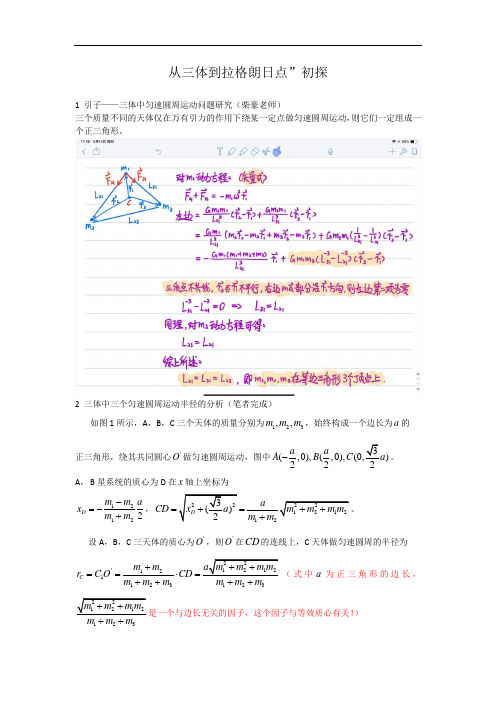 从三体到拉格朗日点”初探
1 引子——三体中匀速圆周运动问题研究（柴豪老师）
三个质量不同的天体仅在万有引力的作用下绕某一定点做匀速圆周运动，则它们一定组成一
个正三角形。
对m₁动力方程：(矢量式)
F₂₁+F₃₁=-m₁ω²r₁
左边=Gm₁m₂/L₂₁³(r₂-r₁)+Gm₁m₃/L₃₁³(r₃-r₁)
三质点不共线，
L₃₁⁻³-L₂₁⁻³=0 => L₃₁=L₂₁
同理，对m₂动力方程可得：
L₂₃=L₂₁
综上所述：
L₂₁=L₃₁=L₂₃，即m₁,m₂,m₃在等边三角形3个顶点上.
2 三体中三个匀速圆周运动半径的分析（笔者完成）
如图 1 所示，A，B，C 三个天体的质量分别为m₁,m₂,m₃，始终构成一个边长为a的
正三角形，绕其共同圆心O'做匀速圆周运动，图中A(-a/2,0),B(a/2,0),C(0,√3/2 a)。
A，B 星系统的质心为 D 在x轴上坐标为
x_D=-(m₁-m₂)/(m₁+m₂) a/2，CD=√(x_D²+(√3/2 a)²)=a/(m₁+m₂)√(m₁²+m₂²+m₁m₂)。
设 A，B，C 三天体的质心为O'，则O'在CD的连线上，C 天体做匀速圆周的半径为
r_C=C₁O'=(m₁+m₂)/(m₁+m₂+m₃)·CD=a√(m₁²+m₂²+m₁m₂)/(m₁+m₂+m₃)（式中a为正三角形的边长，
√(m₁²+m₂²+m₁m₂)/(m₁+m₂+m₃)是一个与边长无关的因子，这个因子与等效质心有关！）